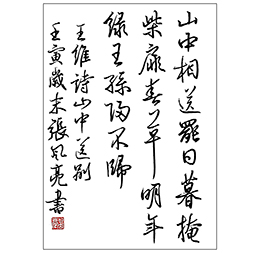 山中相送罷日暮掩
柴扉春草明年
綠王孫歸不歸
王維詩山中送別
壬寅歲末張風亮書